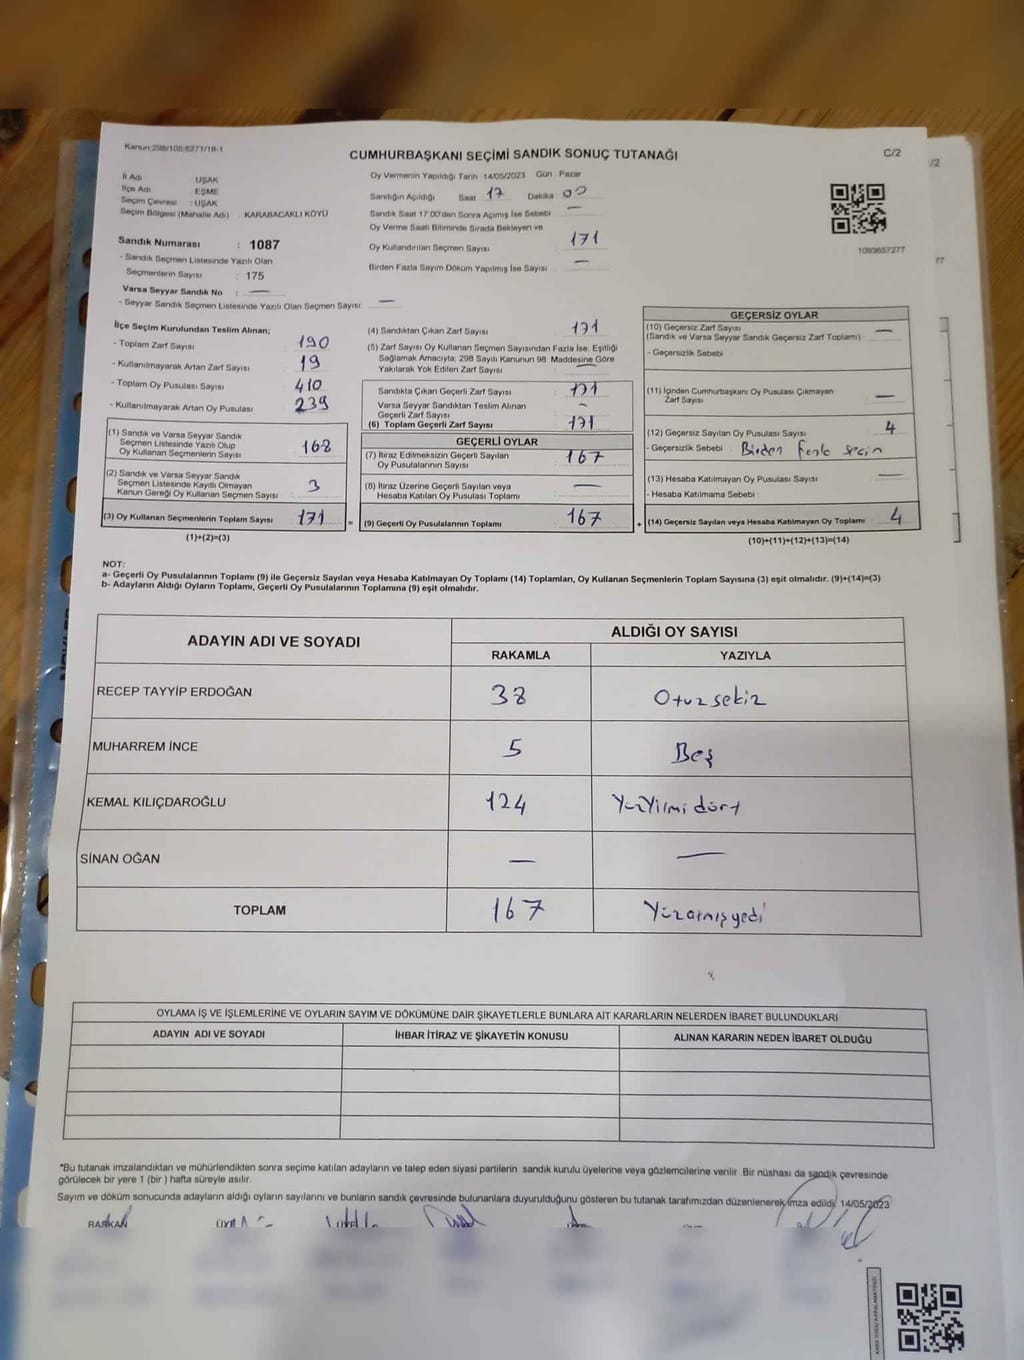 Kanun:298/105,6271/18-1
CUMHURBAŞKANI SEÇİMİ SANDIK SONUÇ TUTANAĞI
C/2
/2
İl Adı : UŞAK
İlçe Adı : EŞME
Seçim Çevresi : UŞAK
Seçim Bölgesi (Mahalle Adı) : KARABACAKLI KÖYÜ
Oy Vermenin Yapıldığı Tarih 14/05/2023 Gün Pazar
Sandığın Açıldığı Saat 17 Dakika : 00
Sandık Saat 17.00'den Sonra Açımış İse Sebebi —
Oy Verme Saati Bitiminde Sırada Bekleyen ve
Oy Kullandırılan Seçmen Sayısı 171
Birden Fazla Sayım Döküm Yapılmış İse Sayısı —
1093657277
77
Sandık Numarası : 1087
- Sandık Seçmen Listesinde Yazılı Olan
Seçmenlerin Sayısı : 175
Varsa Seyyar Sandık No : —
- Seyyar Sandık Seçmen Listesinde Yazılı Olan Seçmen Sayısı: —
İlçe Seçim Kurulundan Teslim Alınan;
- Toplam Zarf Sayısı 190
- Kullanılmayarak Artan Zarf Sayısı 19
- Toplam Oy Pusulası Sayısı 410
- Kullanılmayarak Artan Oy Pusulası 239
(1) Sandık ve Varsa Seyyar Sandık
Seçmen Listesinde Yazılı Olup
Oy Kullanan Seçmenlerin Sayısı 168
(2) Sandık ve Varsa Seyyar Sandık
Seçmen Listesinde Kayıtlı Olmayan
Kanun Gereği Oy Kullanan Seçmen Sayısı 3
(3) Oy Kullanan Seçmenlerin Toplam Sayısı 171
(1)+(2)=(3)
(4) Sandıktan Çıkan Zarf Sayısı 171
(5) Zarf Sayısı Oy Kullanan Seçmen Sayısından Fazla İse, Eşitliği
Sağlamak Amacıyla; 298 Sayılı Kanunun 98. Maddesine Göre
Yakılarak Yok Edilen Zarf Sayısı —
Sandıkta Çıkan Geçerli Zarf Sayısı 171
Varsa Seyyar Sandıktan Teslim Alınan
Geçerli Zarf Sayısı —
(6) Toplam Geçerli Zarf Sayısı 171
GEÇERLİ OYLAR
(7) İtiraz Edilmeksizin Geçerli Sayılan
Oy Pusulalarının Sayısı 167
(8) İtiraz Üzerine Geçerli Sayılan veya
Hesaba Katılan Oy Pusulası Toplamı —
= (9) Geçerli Oy Pusulalarının Toplamı 167
GEÇERSİZ OYLAR
(10) Geçersiz Zarf Sayısı —
(Sandık ve Varsa Seyyar Sandık Geçersiz Zarf Toplamı)
- Geçersizlik Sebebi
(11) İçinden Cumhurbaşkanı Oy Pusulası Çıkmayan
Zarf Sayısı —
(12) Geçersiz Sayılan Oy Pusulası Sayısı 4
- Geçersizlik Sebebi Birden fazla seçim
(13) Hesaba Katılmayan Oy Pusulası Sayısı —
- Hesaba Katılmama Sebebi
+ (14) Geçersiz Sayılan veya Hesaba Katılmayan Oy Toplamı 4
(10)+(11)+(12)+(13)=(14)
NOT:
a- Geçerli Oy Pusulalarının Toplamı (9) ile Geçersiz Sayılan veya Hesaba Katılmayan Oy Toplamı (14) Toplamları, Oy Kullanan Seçmenlerin Toplam Sayısına (3) eşit olmalıdır. (9)+(14)=(3)
b- Adayların Aldığı Oyların Toplamı, Geçerli Oy Pusulalarının Toplamına (9) eşit olmalıdır.
ADAYIN ADI VE SOYADI
ALDIĞI OY SAYISI
RAKAMLA YAZIYLA
RECEP TAYYİP ERDOĞAN 38 Otuzsekiz
MUHARREM İNCE 5 Beş
KEMAL KILIÇDAROĞLU 124 Yüzyirmi dört
SİNAN OĞAN — —
TOPLAM 167 Yüzatmışyedi
OYLAMA İŞ VE İŞLEMLERİNE VE OYLARIN SAYIM VE DÖKÜMÜNE DAİR ŞİKAYETLERLE BUNLARA AİT KARARLARIN NELERDEN İBARET BULUNDUKLARI
ADAYIN ADI VE SOYADI İHBAR İTİRAZ VE ŞİKAYETİN KONUSU ALINAN KARARIN NEDEN İBARET OLDUĞU
*Bu tutanak imzalandıktan ve mühürlendikten sonra seçime katılan adayların ve talep eden siyasi partilerin sandık kurulu üyelerine veya gözlemcilerine verilir. Bir nüshası da sandık çevresinde
görülecek bir yere 1 (bir ) hafta süreyle asılır.
Sayım ve döküm sonucunda adayların aldığı oyların sayılarını ve bunların sandık çevresinde bulunanlara duyurulduğunu gösteren bu tutanak tarafımızdan düzenlenerek imza edildi. 14/05/2023
BAŞKAN